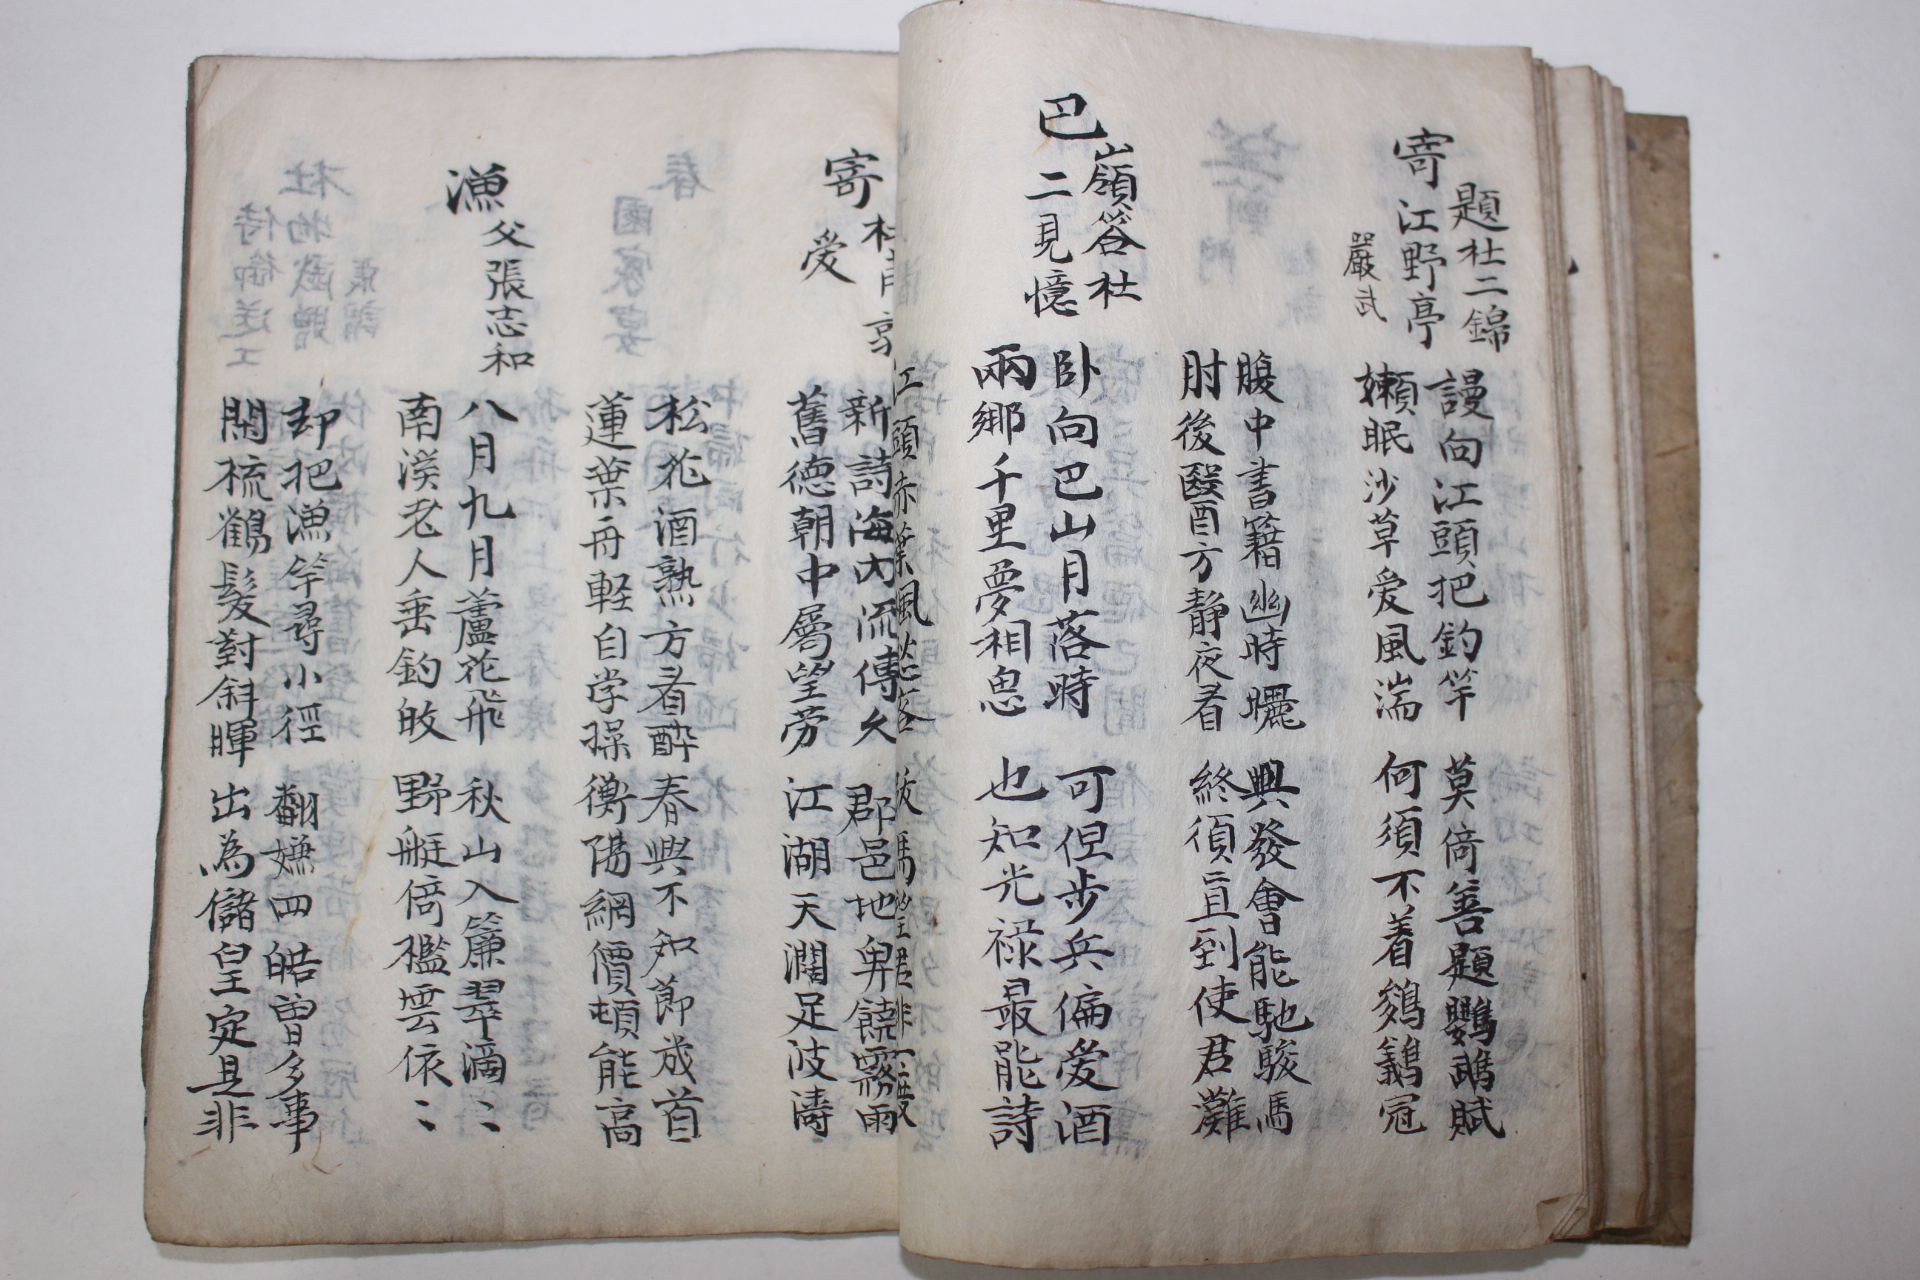 寄題杜二錦
江野亭
嚴武
謾向江頭把釣竿
嬾眠沙草愛風湍
莫倚善題鸚鵡賦
何須不着鵕鸃冠
腹中書籍幽時曬
肘後醫方靜夜看
興發會能馳駿馬
終須直到使君灘
巴嶺答杜
二見憶
臥向巴山月落時
兩鄉千里夢相思
可但步兵偏愛酒
也知光祿最能詩
江頭赤葉楓愁客
寄杜
愛
新詩海內流傳久
舊德朝中屬望勞
郡邑地卑饒霧雨
江湖天濶足波濤
松花酒熟方看醉
蓮葉舟軽自学操
春興不知節歲首
衡陽網價頓能高
漁父張志和
八月九月蘆花飛
南溪老人垂釣皈
秋山入簾翠滴〻
野艇倚檻雲依〻
却把漁竿尋小徑
閑梳鶴髮對斜暉
翻嫌四皓曽多事
出為儲皇定是非